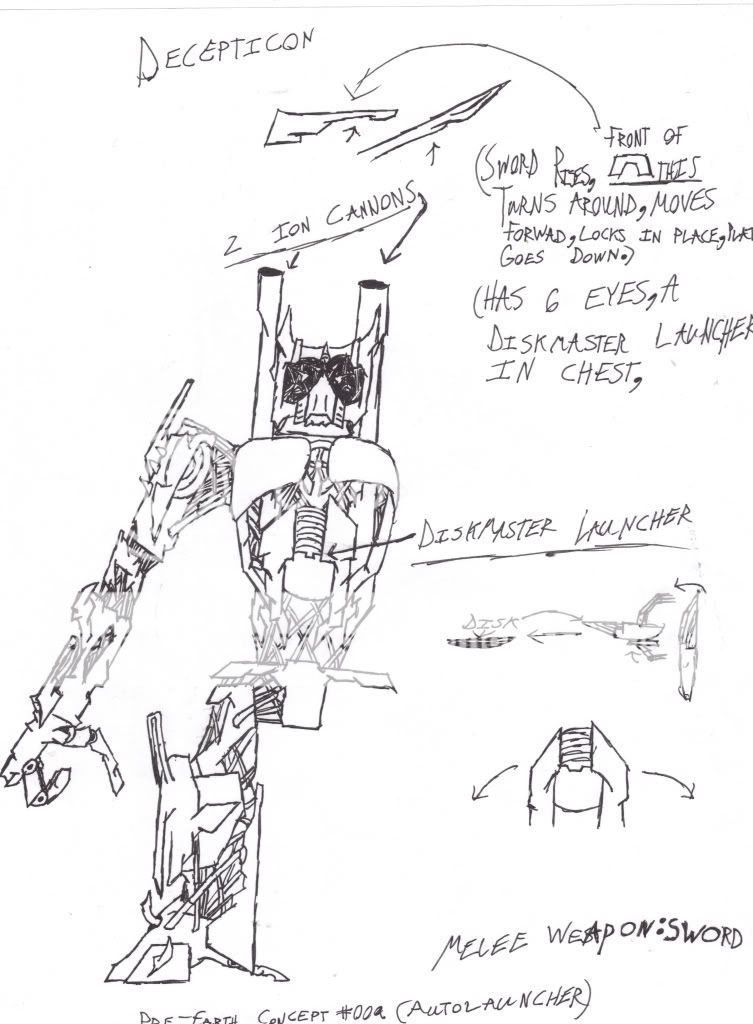 DECEPTICON
FRONT OF
(SWORD RISES, THIS
TURNS AROUND, MOVES
FORWAD, LOCKS IN PLACE, PLAT
GOES DOWN.)
2 ION CANNONS
(HAS 6 EYES, A
DISKMASTER LAUNCHER
IN CHEST,
DISKMASTER LAUNCHER
DISK
MELEE WEAPON: SWORD
PRE-EARTH CONCEPT #002 (AUTOLAUNCHER)